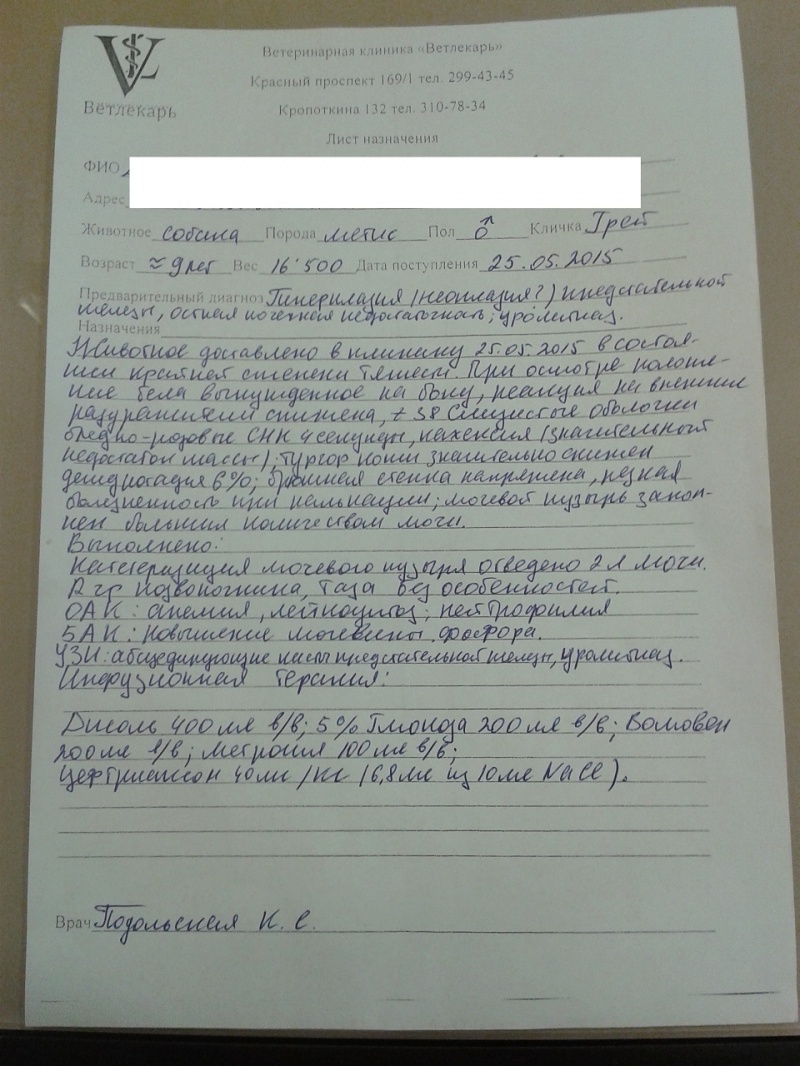 Ветлекарь
Ветеринарная клиника «Ветлекарь»
Красный проспект 169/1 тел. 299-43-45
Кропоткина 132 тел. 310-78-34
Лист назначения
ФИО
Адрес
Животное собака Порода метис Пол ♂ Кличка Грей
Возраст ≈ 9 лет Вес 16'500 Дата поступления 25.05.2015
Предварительный диагноз Гиперплазия (неоплазия?) предстательной
железы, острая почечная недостаточность; уролитиаз.
Назначения
Животное доставлено в клинику 25.05.2015 в состоя-
нии крайней степени тяжести. При осмотре положе-
ние тела вынужденное на боку, реакция на внешние
раздражители снижена, t 38 Слизистые оболочки
бледно-розовые СНК 4 секунды, кахексия (значительный
недостаток массы); тургор кожи значительно снижен
дегидратация 6%; брюшная стенка напряжена, резкая
болезненность при пальпации; мочевой пузырь запол-
нен большим количеством мочи.
Выполнено:
Катетеризация мочевого пузыря отведено 2 л мочи.
R гр позвоночника, таза без особенностей.
ОАК: анемия, лейкоцитоз; нейтрофилия
БАК: повышение мочевины, фосфора.
УЗИ: абсцедирующие кисты предстательной железы, уролитиаз.
Инфузионная терапия:
Дисоль 400 мл в/в; 5% Глюкоза 200 мл в/в; Волювен
200 мл в/в; Метрогил 100 мл в/в;
Цефтриаксон 40мг/кг (6,8мл из 10мл NaCl).
Врач Подольская К. С.